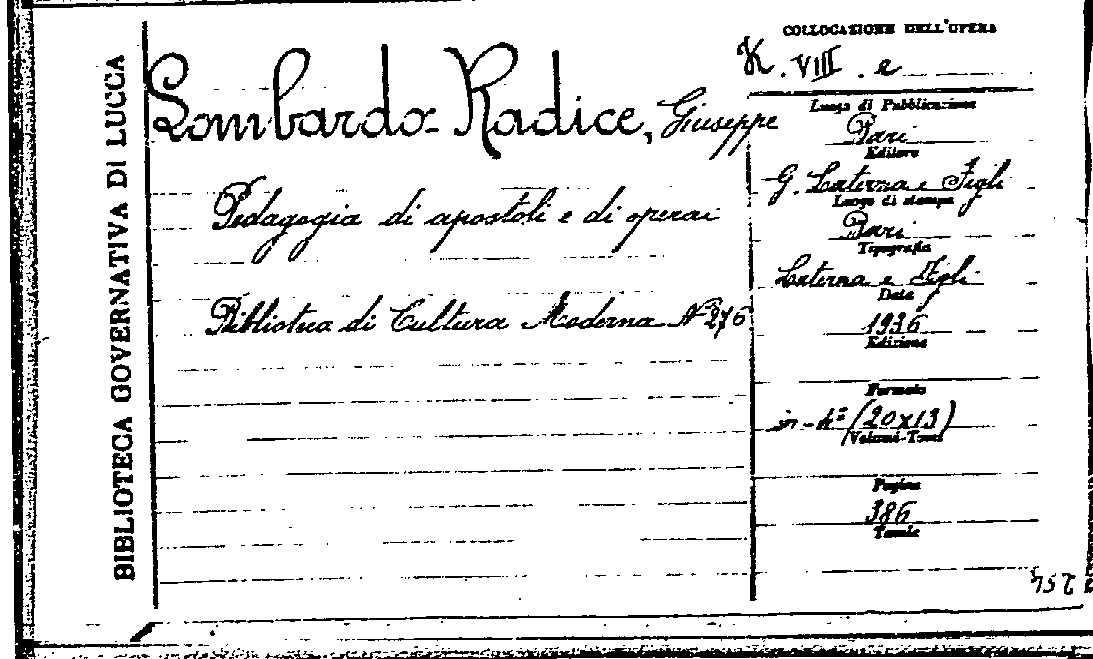 BIBLIOTECA GOVERNATIVA DI LUCCA
Lombardo-Radice, Giuseppe
Pedagogia di apostoli e di operai
Biblioteca di Cultura Moderna Nº 276
COLLOCAZIONE DELL'OPERA
K. VIII. e
Luogo di Pubblicazione
Bari
Editore
G. Laterza e Figli
Luogo di stampa
Bari
Tipografia
Laterza e Figli
Data
1936
Edizione
Formato
(20x13)
Volumi-Tomi
Pagine
386
Tavole